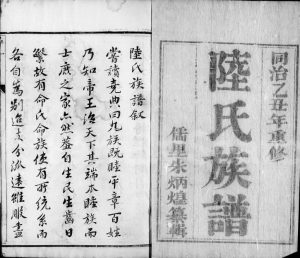 同治乙丑年重修
陸氏族譜
儒里朱炳煌纂輯
陸氏族譜叙
嘗讀堯典曰九族既睦平章百姓
乃知帝王治天下其端本睦族而
士庶之家亦然蓋自生民生齒日
繁故有命氏命族使有所統系而
各自爲別迨支分派遠雖服盡